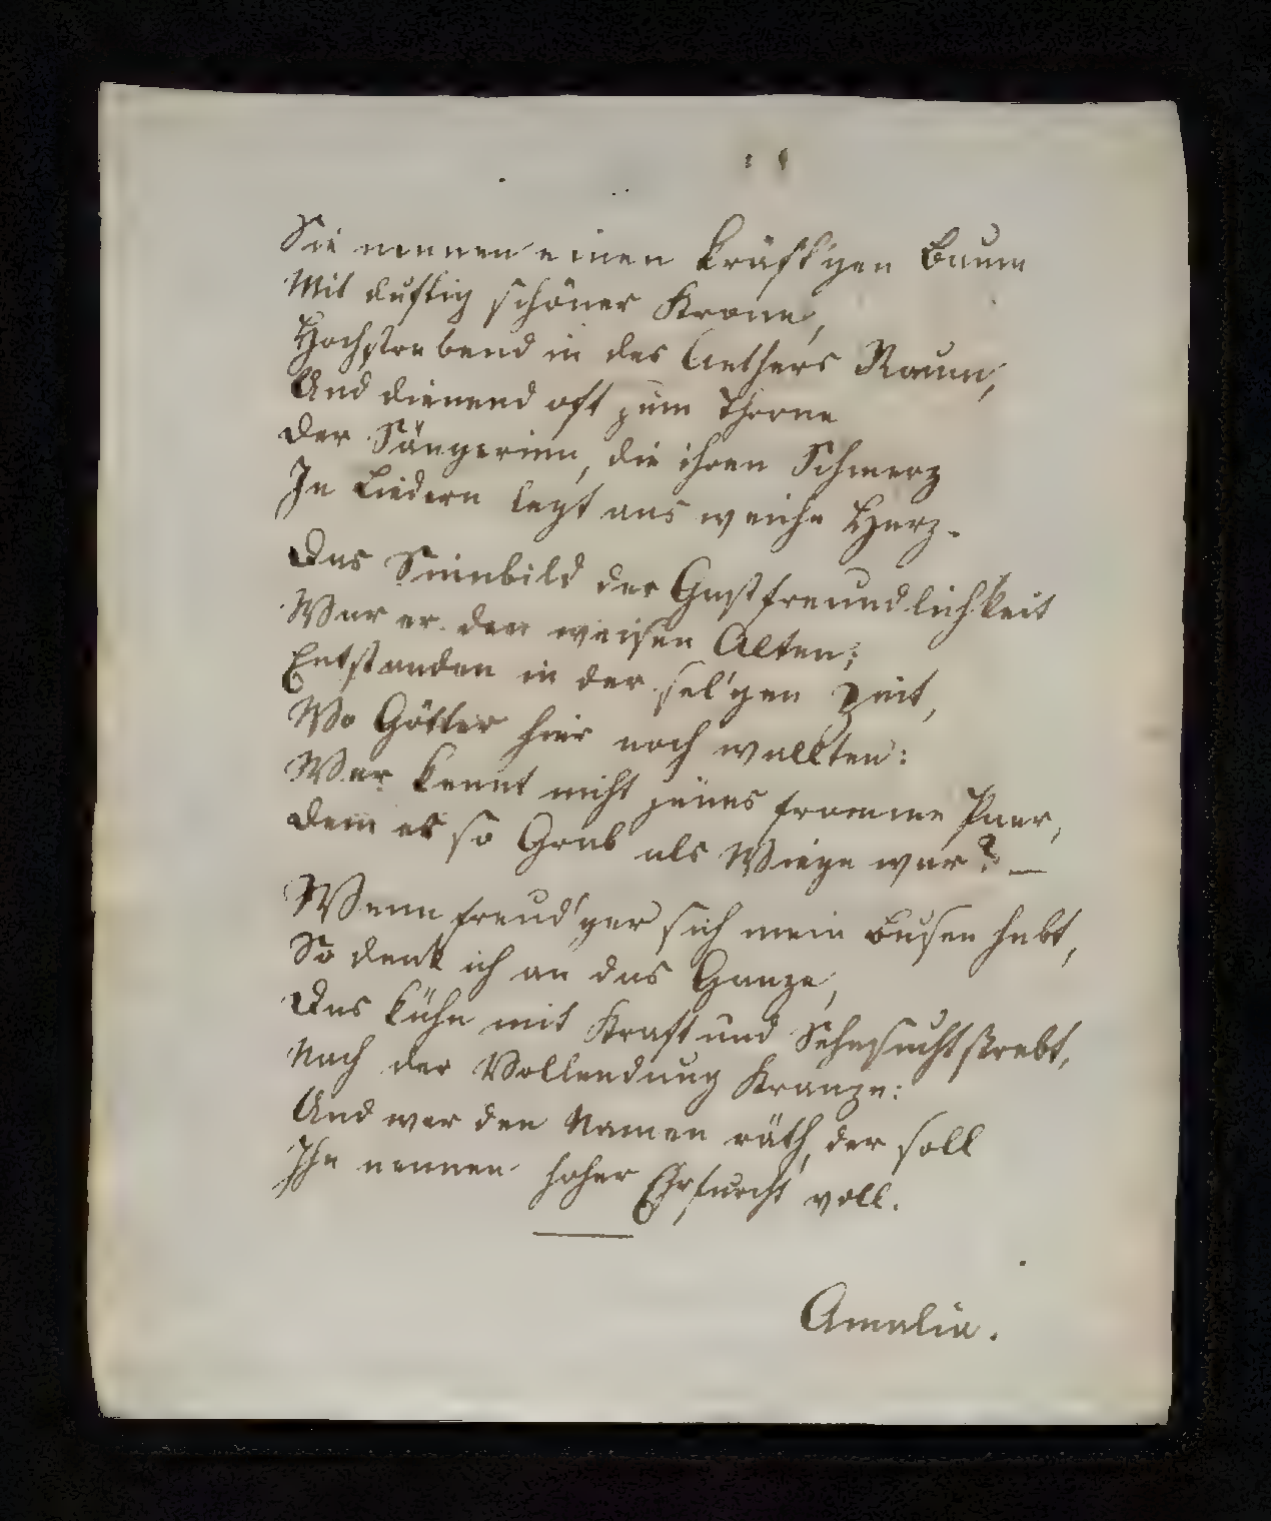 Sie nennen einen kräft'gen Baum
Mit duftig schöner Krone,
Hochstrebend in des Aethers Raum,
Und dienend oft zum Throne
Der Sängerinn, die ihren Schmerz
In Liedern legt ans weiche Herz.
Das Sinnbild der Gastfreundlichkeit
War er den weisen Alten;
Entstanden in der sel'gen Zeit,
Wo Götter hier noch wallten:
Wer kennt nicht jenes fromme Paar,
Dem er so Grab als Wiege war? —
Wenn freud'ger sich mein Busen hebt,
So denk ich an das Ganze,
Das kühn mit Kraft und Sehnsucht strebt,
Nach der Vollendung Kranze:
Und wer den Namen räth, der soll
Ihn nennen hoher Ehrfurcht voll.
Amalia.